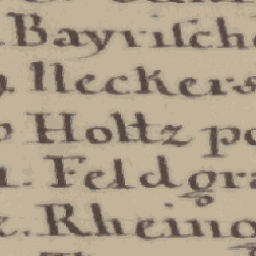 Bayrisch
Neckers
Holtz po
. Feldgra
. Rheing